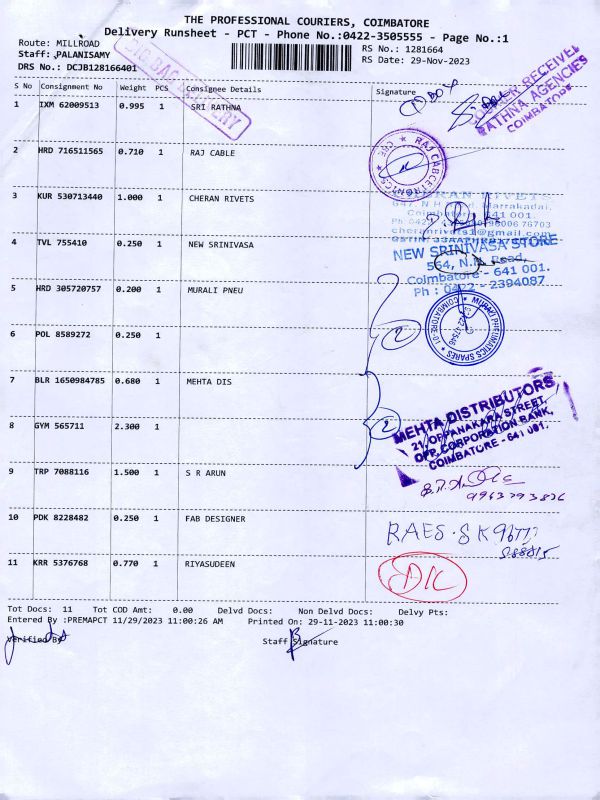 THE PROFESSIONAL COURIERS, COIMBATORE
Delivery Runsheet - PCT - Phone No.:0422-3505555 - Page No.:1
Route: MILLROAD
RS No.: 1281664
Staff: PALANISAMY
RS Date: 29-Nov-2023
DRS No.: DCJB128166401
BIG BAG DELIVERY
RECEIVED
RATHNA AGENCIES
COIMBATORE
S No Consignment No Weight PCS Consignee Details Signature
1 IXM 62009513 0.995 1 SRI RATHNA
2 HRD 716511565 0.710 1 RAJ CABLE
3 KUR 530713440 1.000 1 CHERAN RIVETS
CHERAN RIVETS
Marrakadai,
641 001.
cheranrivets1@gmail.com
4 TVL 755410 0.250 1 NEW SRINIVASA
NEW SRINIVASA STORE
564, N.H. Road,
Coimbatore - 641 001.
Ph : 0422 - 2394087
5 HRD 305720757 0.200 1 MURALI PNEU
MURALI PNEUMATICS SPARES
6 POL 8589272 0.250 1
2
7 BLR 1650984785 0.680 1 MEHTA DIS
MEHTA DISTRIBUTORS
21, OPPANAKARA STREET,
OPP. CORPORATION BANK,
COIMBATORE - 641 001.
8 GYM 565711 2.300 1
2
9 TRP 7088116 1.500 1 S R ARUN
10 PDK 8228482 0.250 1 FAB DESIGNER
11 KRR 5376768 0.770 1 RIYASUDEEN
Tot Docs: 11 Tot COD Amt: 0.00 Delvd Docs: Non Delvd Docs: Delvy Pts:
Entered By :PREMAPCT 11/29/2023 11:00:26 AM Printed On: 29-11-2023 11:00:30
Verified By Staff Signature